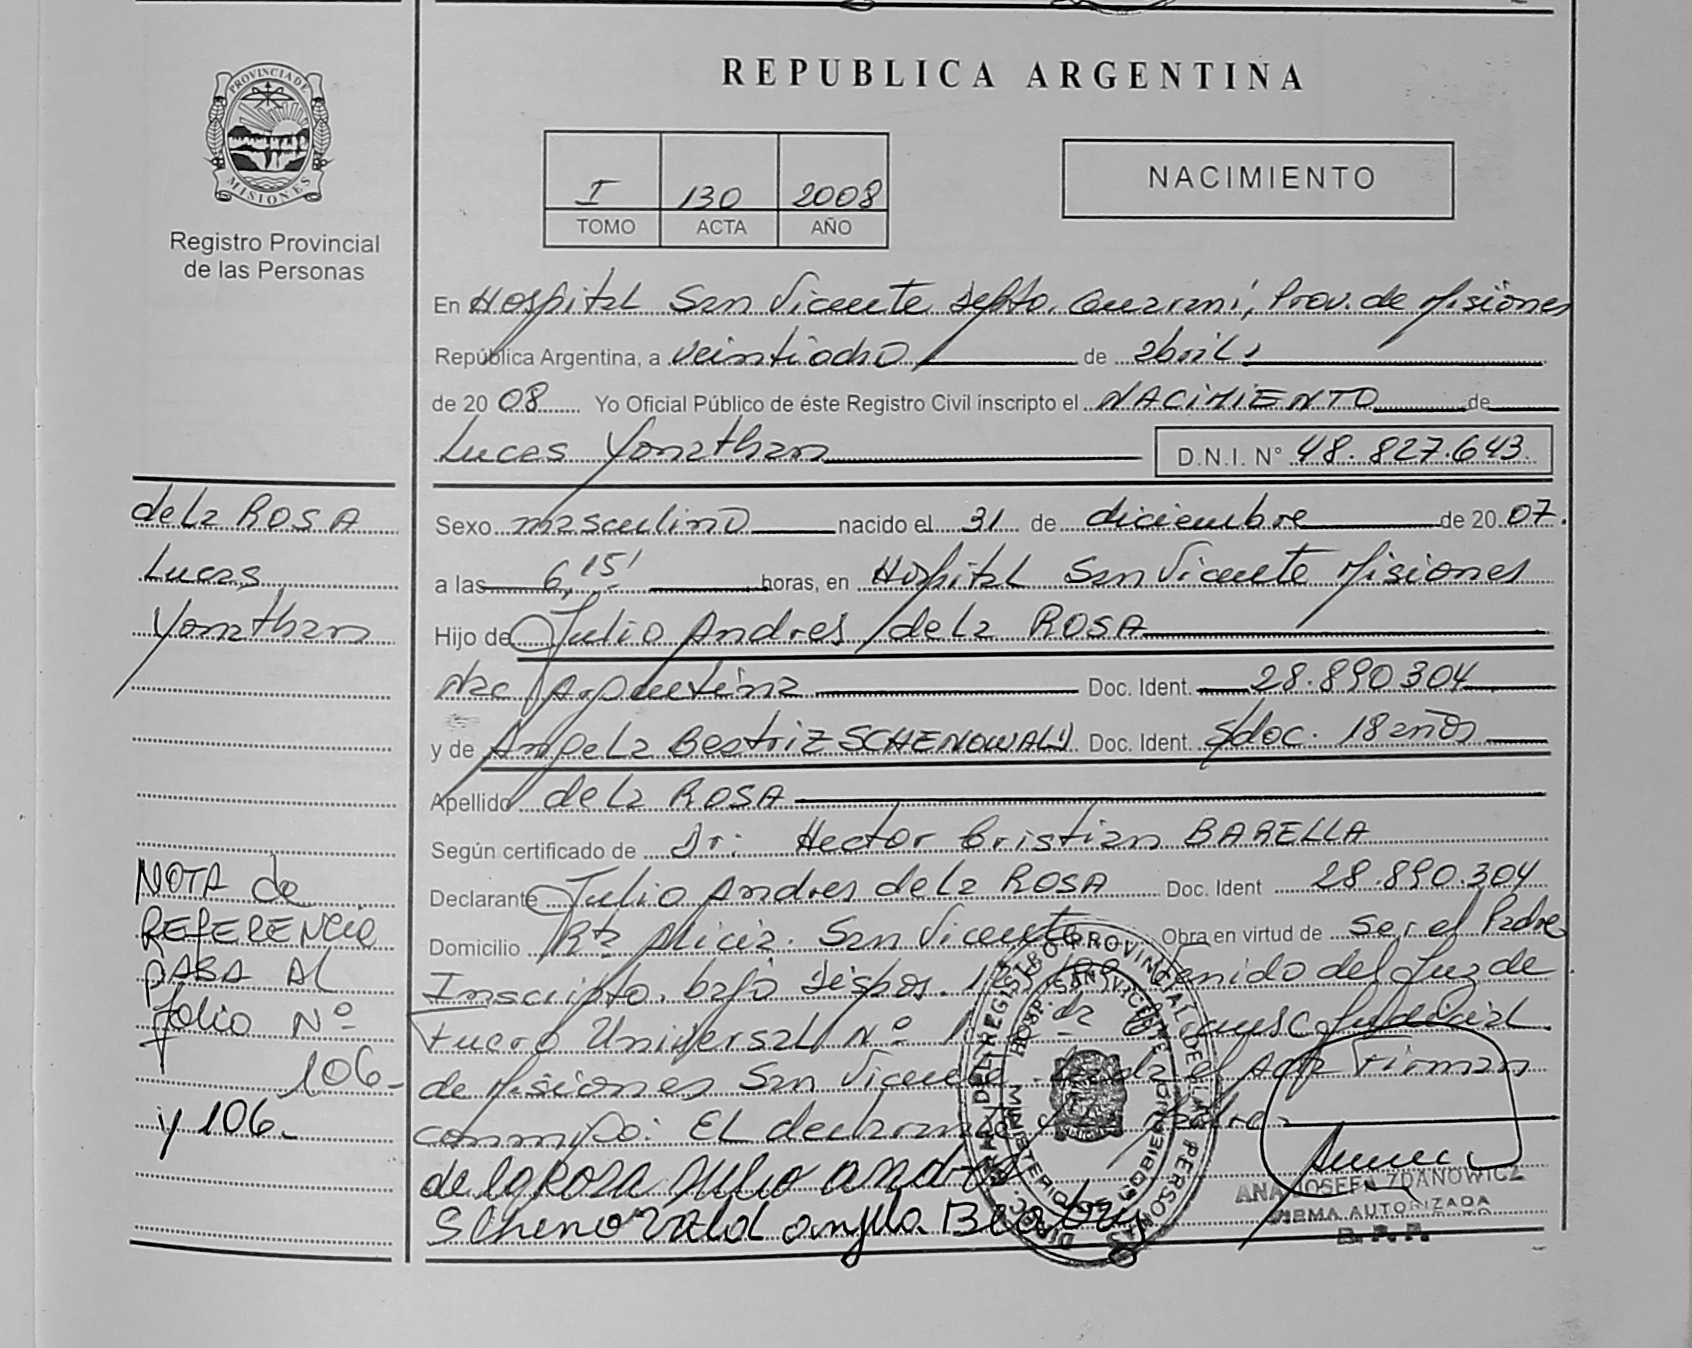 PROVINCIA DE
MISIONES
Registro Provincial
de las Personas
REPUBLICA ARGENTINA
I 130 2008
TOMO ACTA AÑO
NACIMIENTO
En Hospital San Vicente Depto. Guarani, Prov. de Misiones
República Argentina, a veintiocho de abril
de 20 08 Yo Oficial Público de éste Registro Civil inscripto el NACIMIENTO de
Lucas Yonathan D.N.I. N° 48.827.643
Sexo masculino nacido el 31 de diciembre de 20 07.
a las 6,15' horas, en Hospital San Vicente Misiones
Hijo de Julio Andres de la ROSA
Nac Argentina Doc. Ident. 28.890.304
y de Angela Beatriz SCHENOWALD Doc. Ident. S/doc. 18 años
Apellido de la ROSA
Según certificado de Dr: Hector Cristian BARELLA
Declarante Julio Andres de la ROSA Doc. Ident 28.890.304
Domicilio Rta Alicia. San Vicente Obra en virtud de ser el Padre
Inscripto. bajo Dispos. del Juz de
fuero Universal N° 1 de la Judicial
de Misiones San Vicente. el Acta Firman
conmigo: EL declarante y Madre
de la Rosa Julio andres
Schenovald angela Beatriz
de la ROSA
Lucas
Yonathan
NOTA de
REFERENCIA
PASA AL
folio N°
106-
y 106-
DIREC. GRAL. DEL REGISTRO PROVINCIAL DE LAS PERSONAS
HOSP. SAN VICENTE
MINISTERIO DE GOBIERNO
ANA JOSEFA ZDANOWICZ
FIRMA AUTORIZADA
R. P. P.